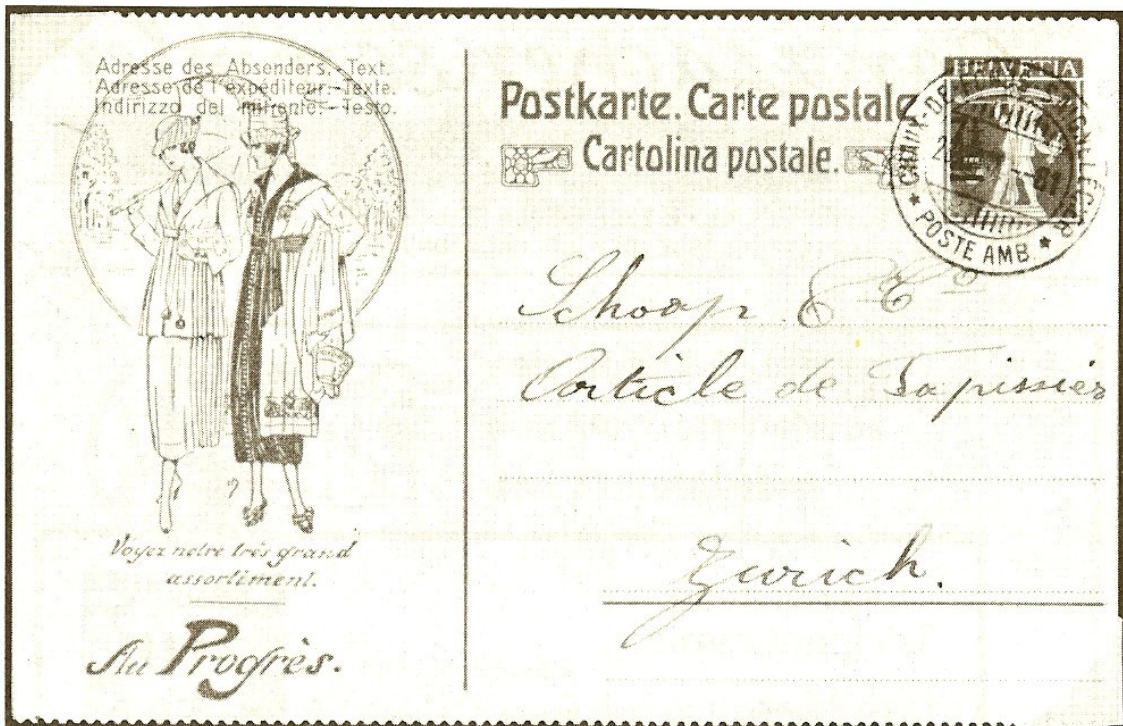 Adresse des Absenders.-Text.
Adresse de l'expéditeur.-Texte.
Indirizzo del mittente.-Testo.
Voyez notre très grand
assortiment.
Au Progrès.
Postkarte. Carte postale
Cartolina postale.
HELVETIA
POSTE AMB.
Schoop & Co
Article de Tapissier
Zurich.